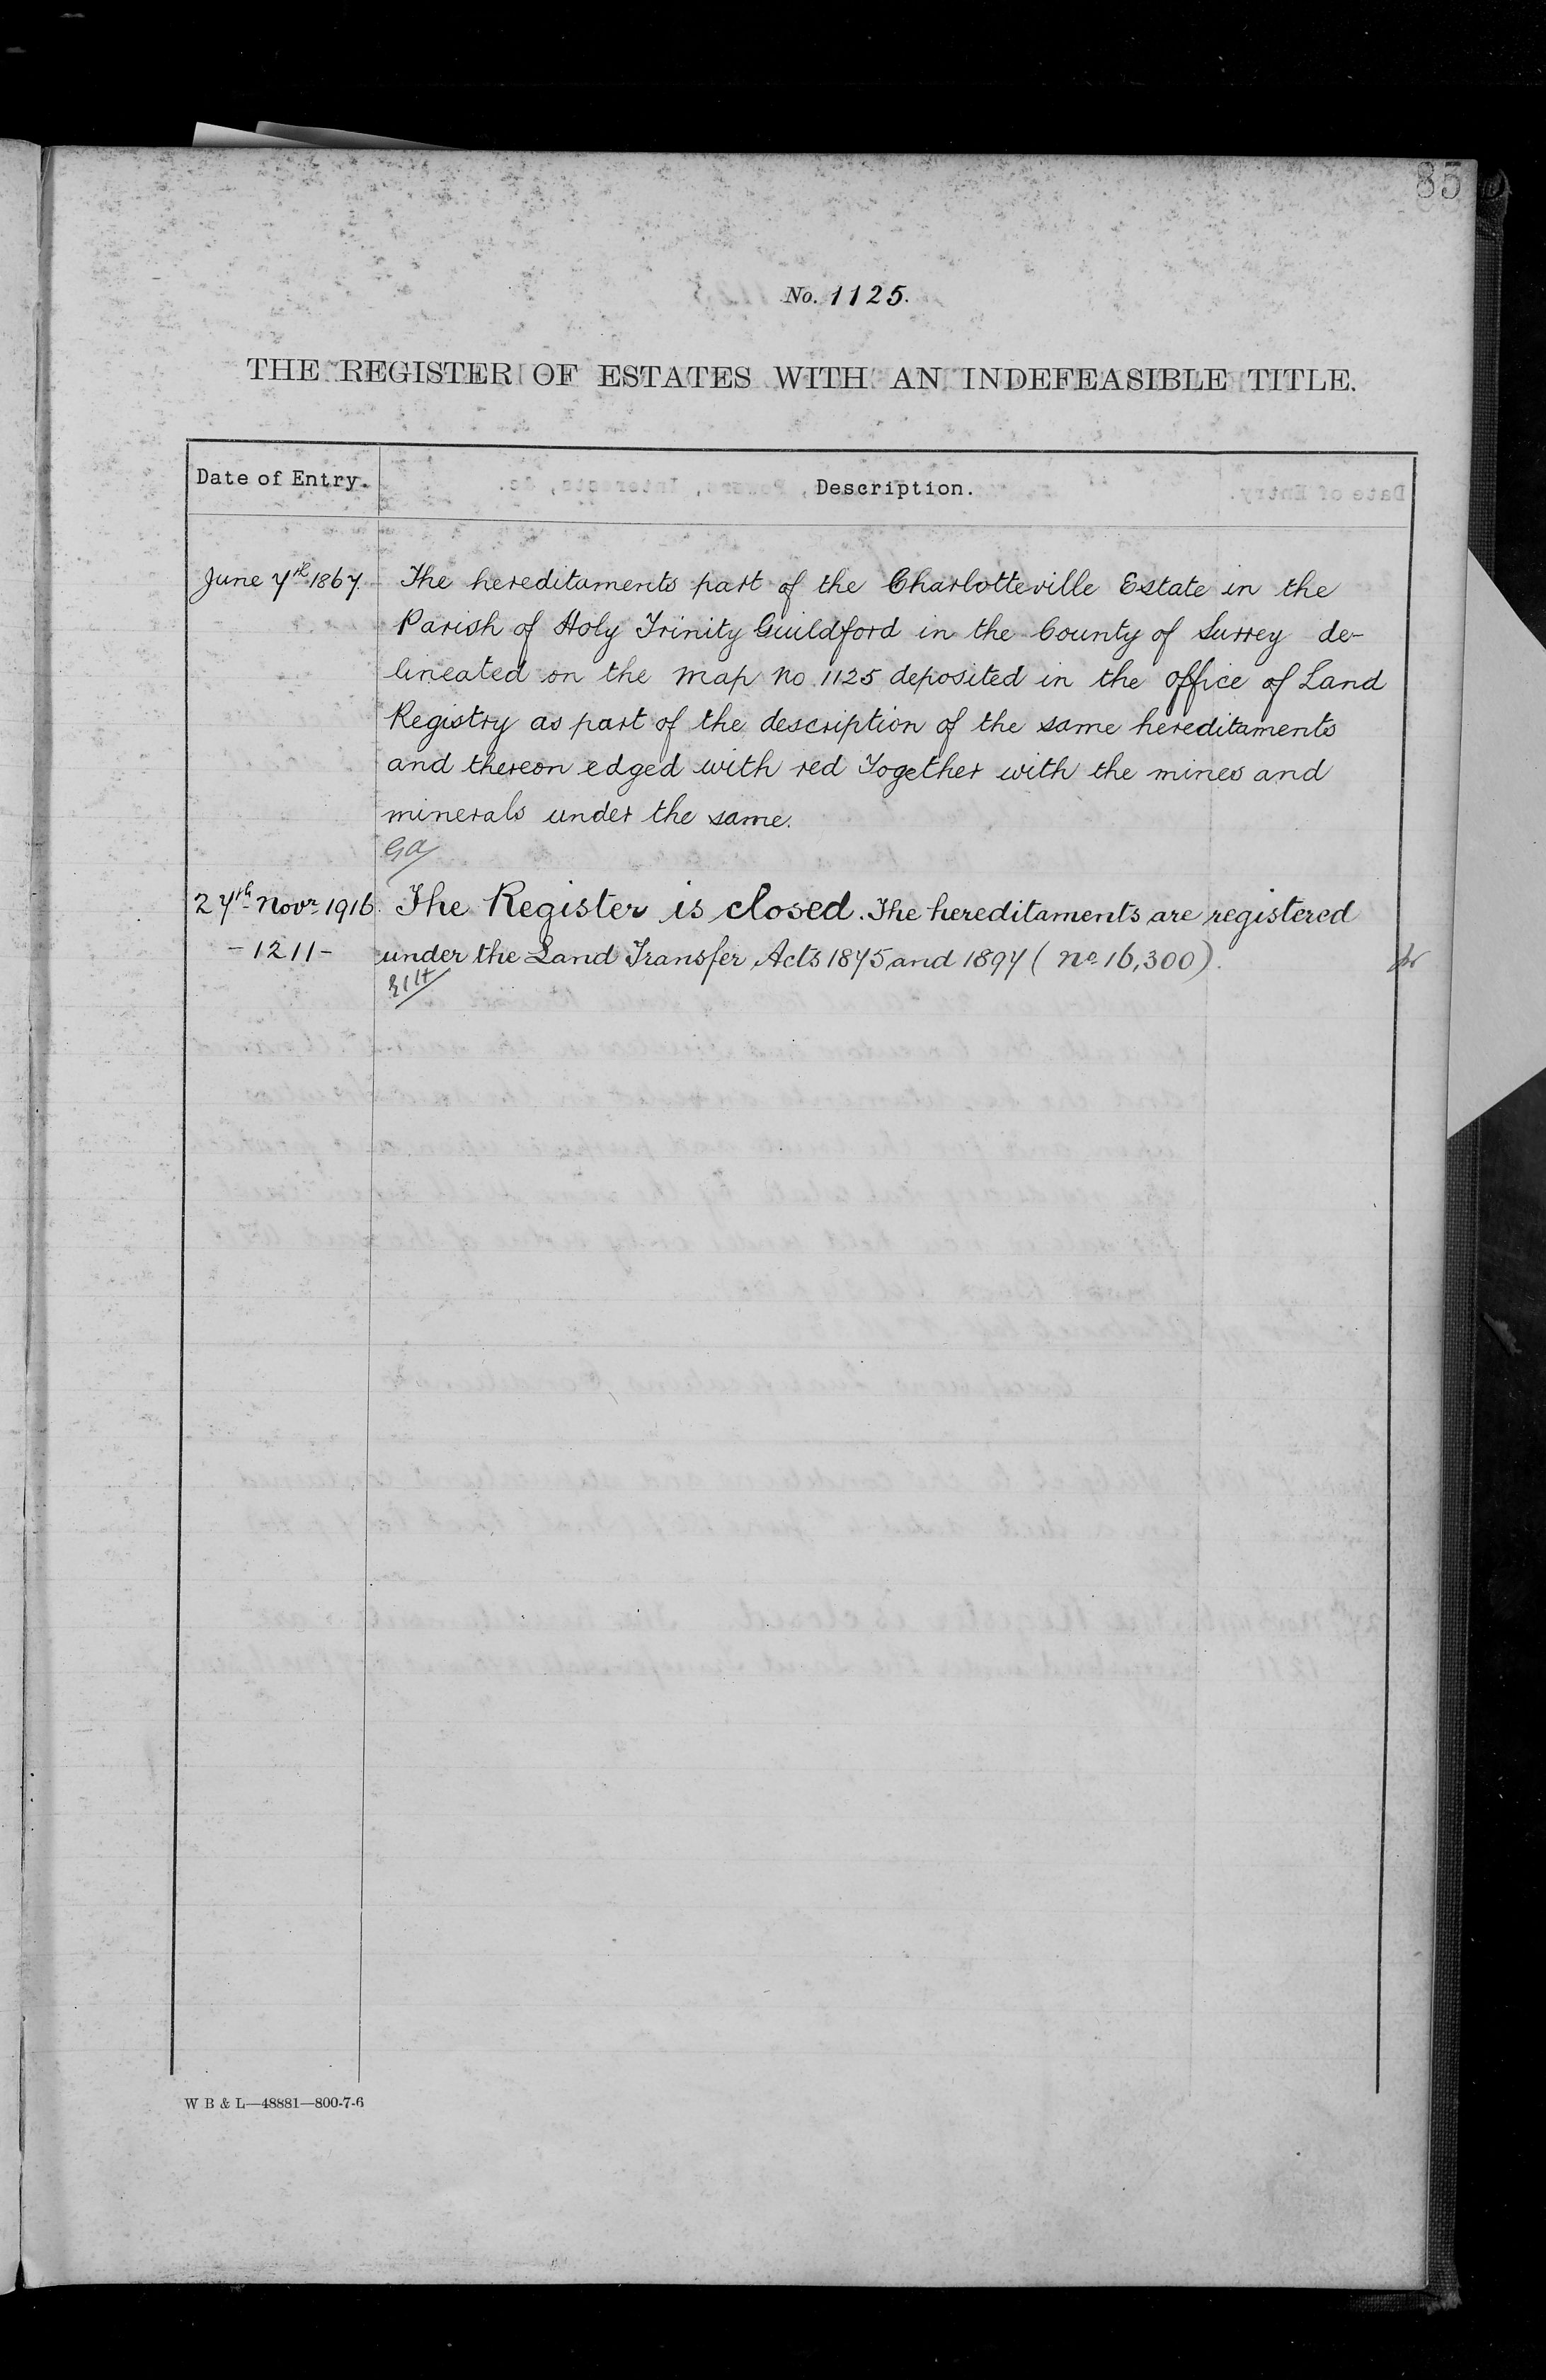 85
No. 1125.
THE REGISTER OF ESTATES WITH AN INDEFEASIBLE TITLE.
Date of Entry.
Description.
June 7th 1867. The hereditaments part of the Charlotteville Estate in the
Parish of Holy Trinity Guildford in the County of Surrey de-
lineated on the Map No 1125 deposited in the office of Land
Registry as part of the description of the same hereditaments
and thereon edged with red Together with the mines and
minerals under the same.
GA
27th Novr 1916. The Register is closed. The hereditaments are registered
-1211- under the Land Transfer Acts 1875 and 1897 (No 16,300).
W B & L—48881—800-7-6